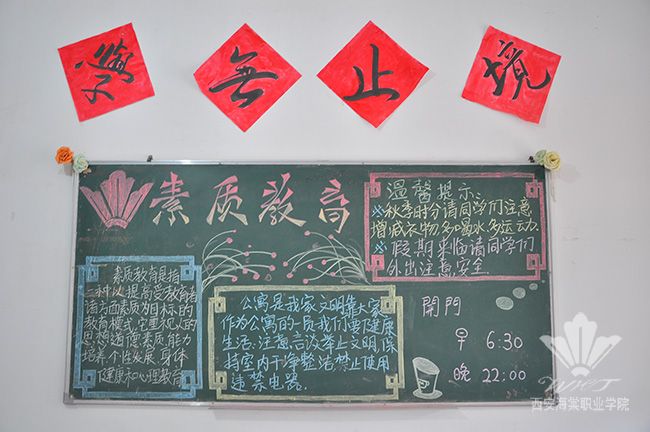 學無止境
素质教育
温馨提示:
※秋季时分请同学们注意
增减衣物多喝水多运动.
※假期来临请同学们
外出注意安全.
素质教育是指
一种以提高受教育者
诸方面素质为目标的
教育模式,它重视人的
思想道德素质能力
培养个性发展,身体
健康和心理教育
公寓是我家文明靠大家
作为公寓的一员我们要健康
生活.注意言谈举止文明,保
持室内干净整洁禁止使用
违禁电器.
開門
早 6:30
晚 22:00
西安海棠职业学院